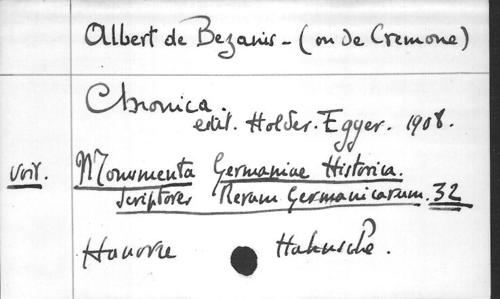 Albert de Bezanis - (ou de Cremone)
Chronica.
edit. Holder. Egger. 1908.
voir. Monumenta Germaniae Historica.
Scriptores Rerum Germanicarum. 32
Hanovre Hahnsche.